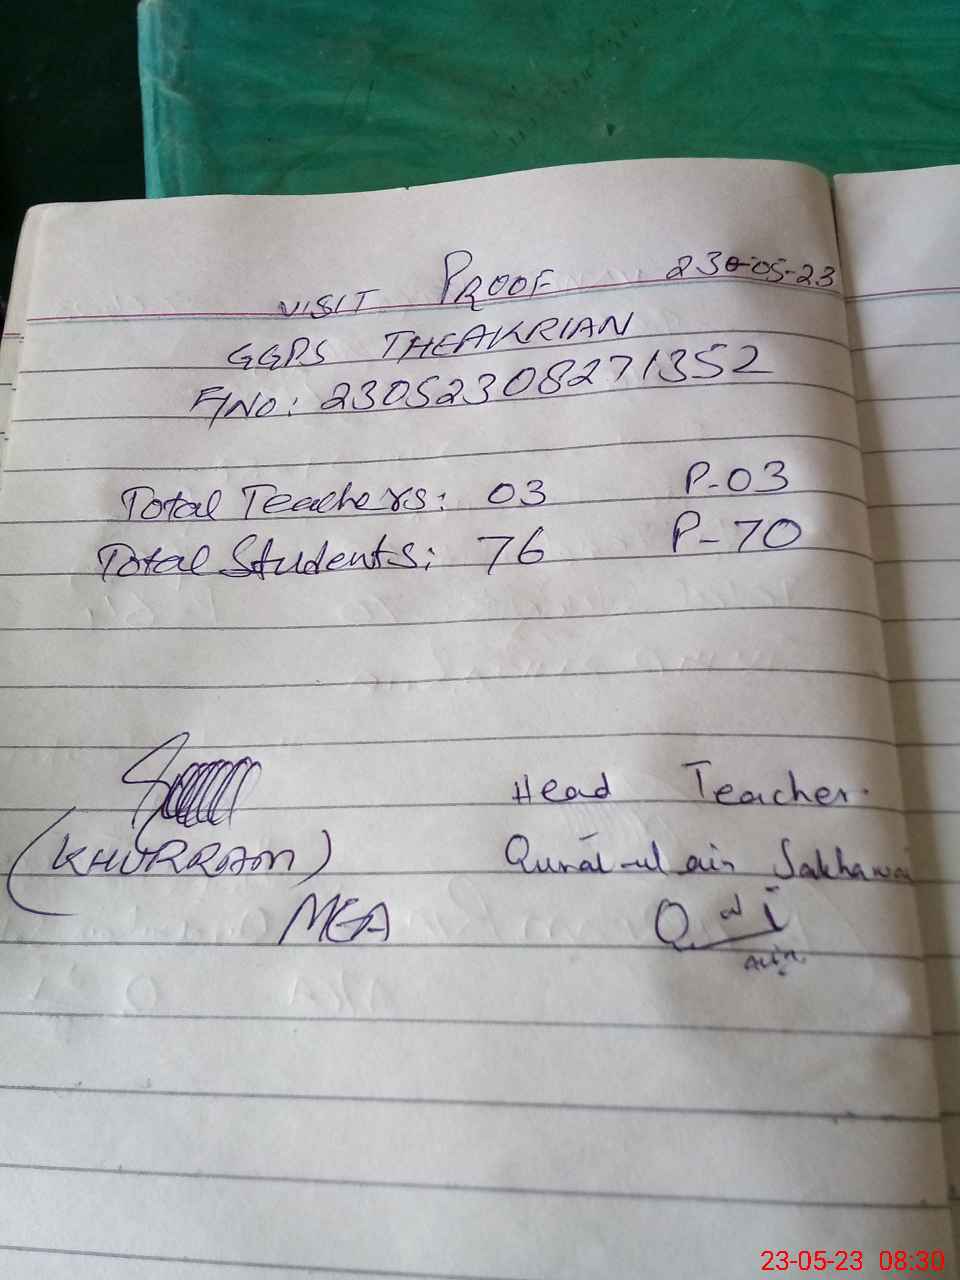 VISIT PROOF 23-05-23
GGPS THEAKRIAN
F/NO: 23052308271352
Total Teachers: 03 P-03
Total Students: 76 P-70
(KHURRAM)
MEA
Head Teacher.
Qurat-ul ain Sakhawa
ain
23-05-23 08:30